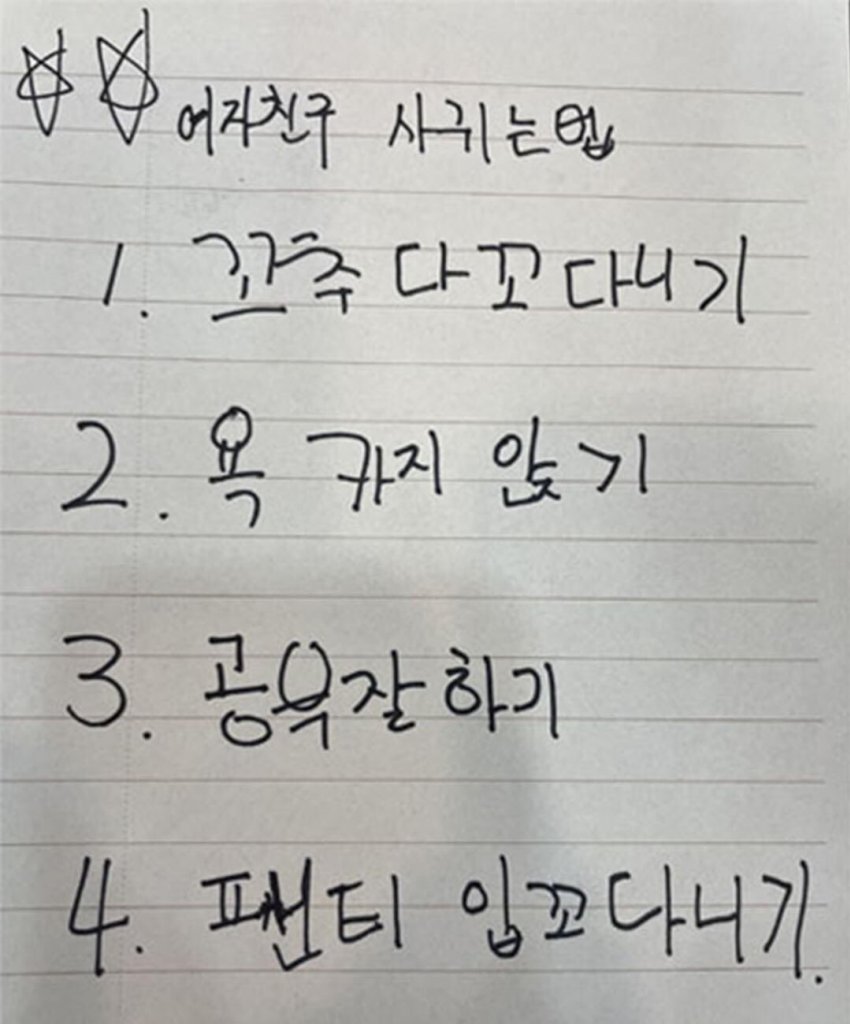 여자친구 사귀는법
1. 꼬추 다꼬다니기
2. 욕 카지 안기
3. 공욕잘하기
4. 팬티 입꼬다니기.